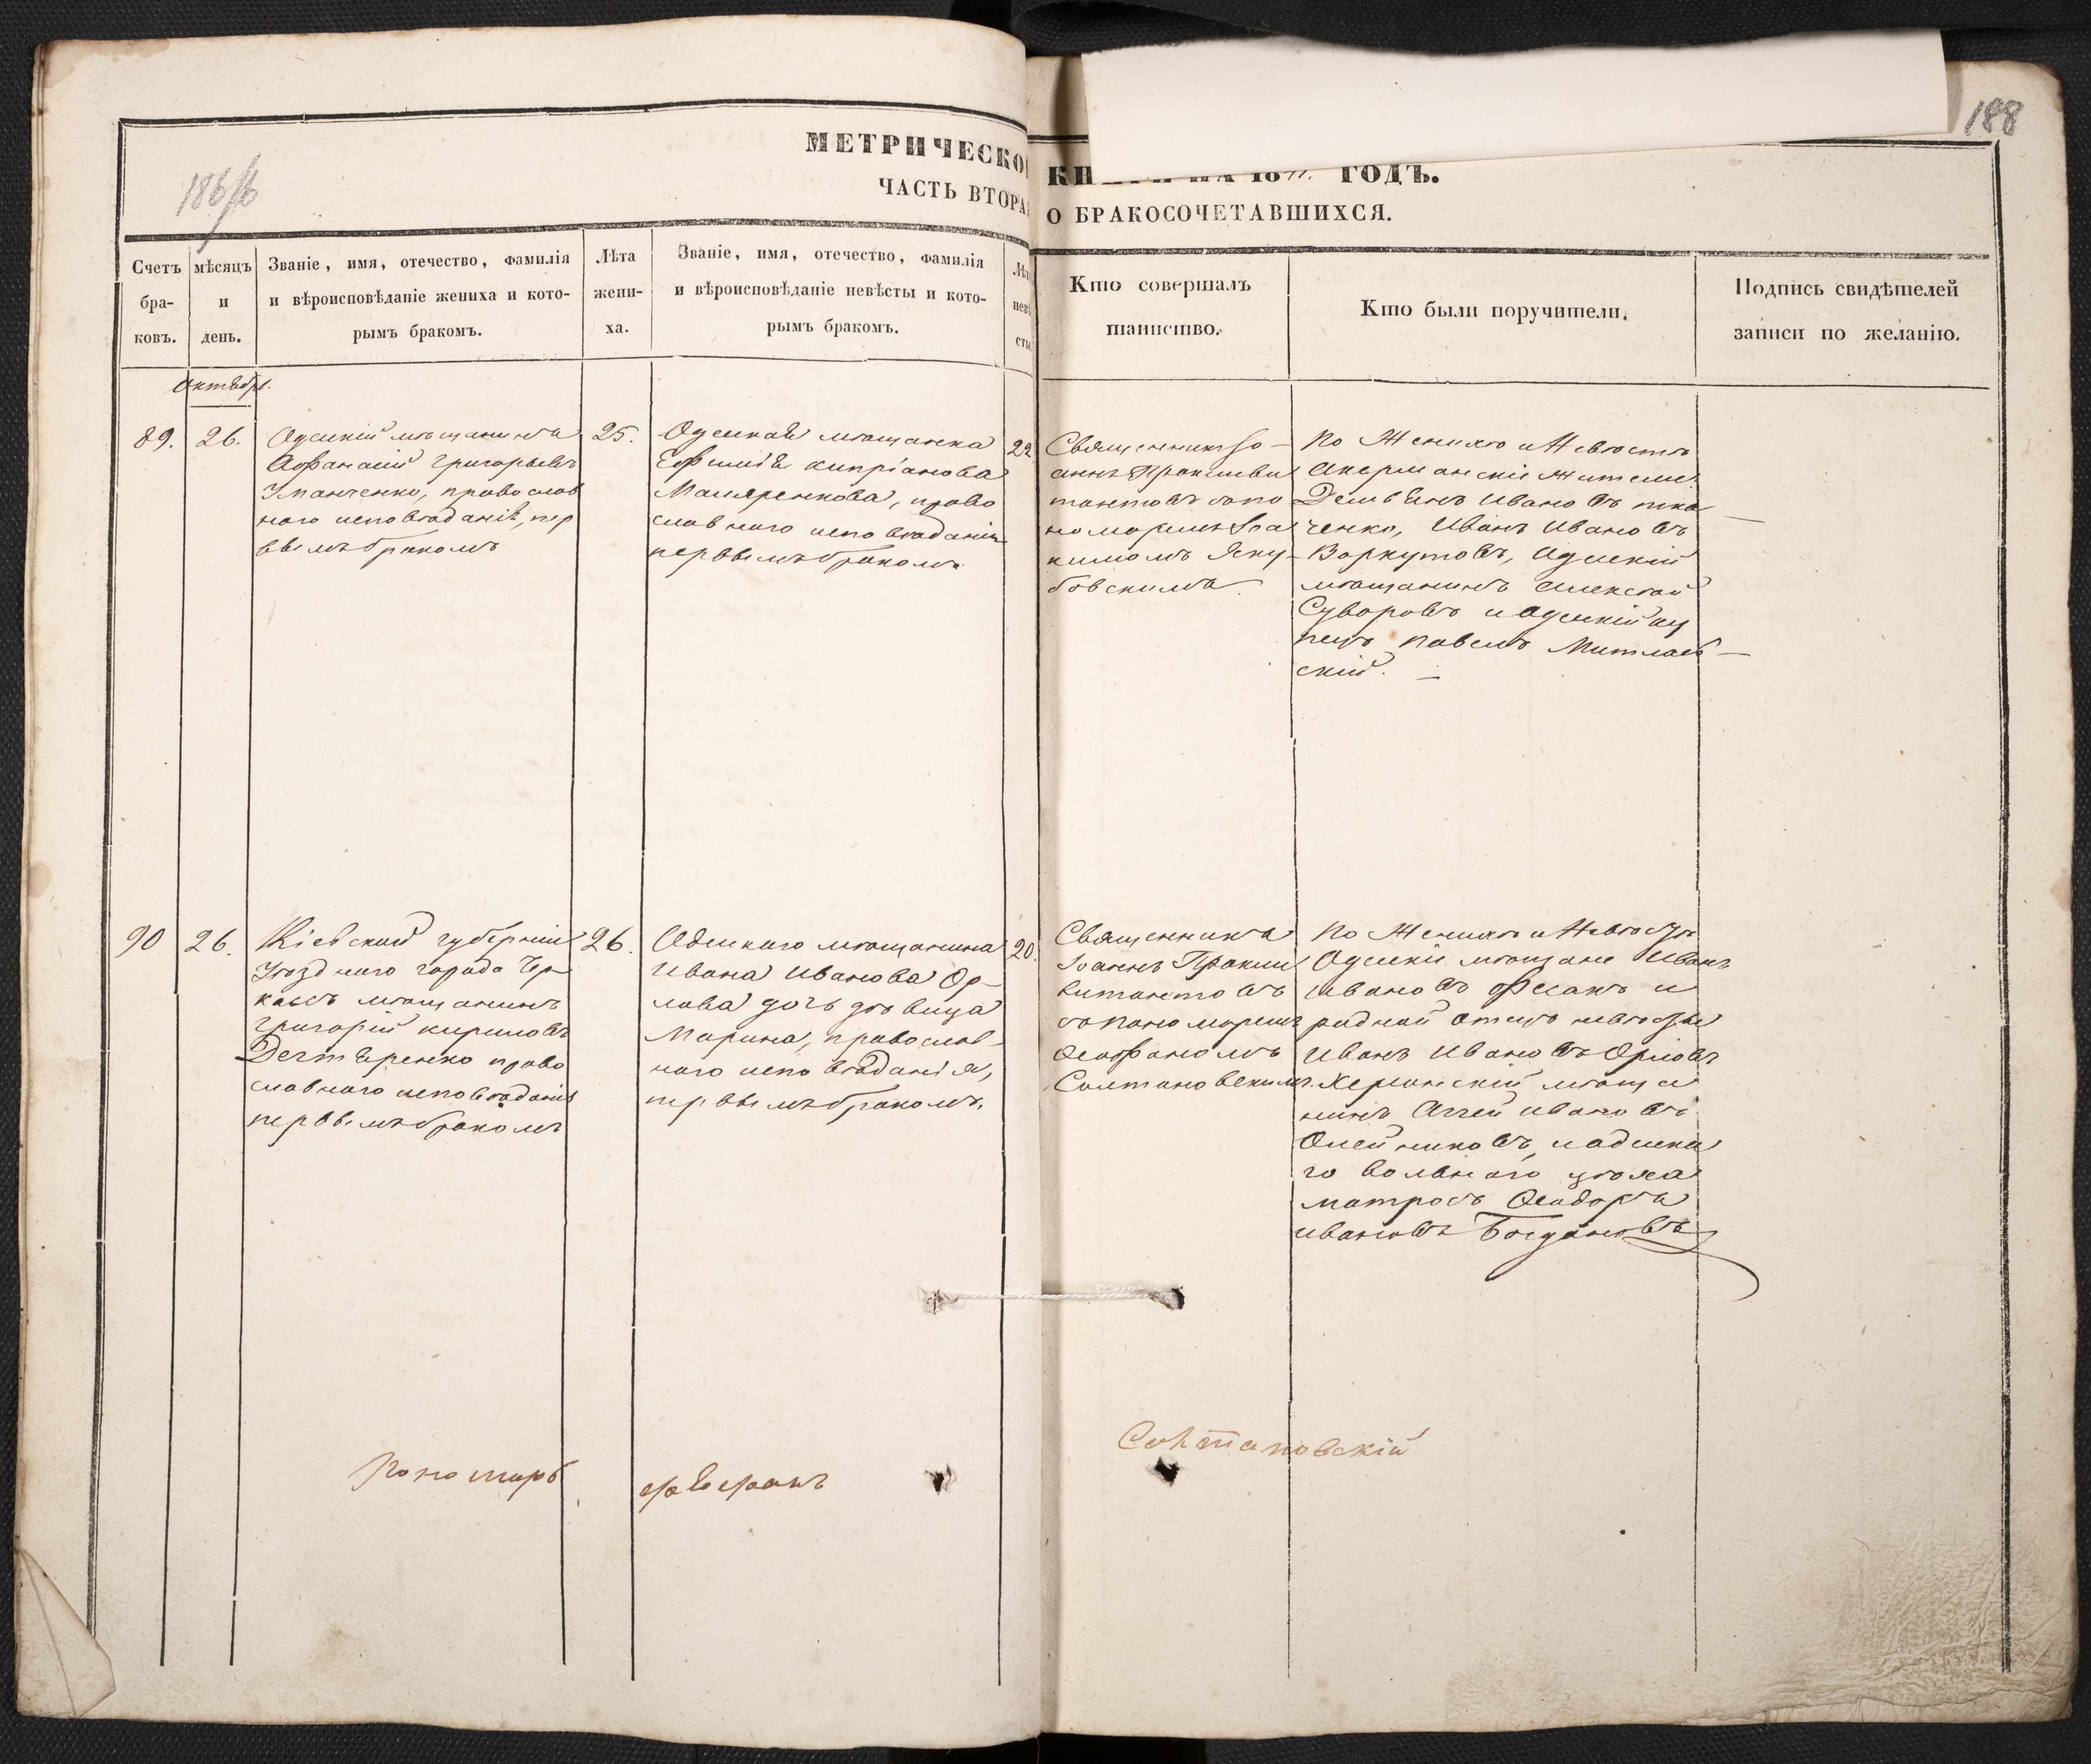 188
186/6
МЕТРИЧЕСКО
ЧАСТЬ ВТОРА
ГОДЪ.
О БРАКОСОЧЕТАВШИХСЯ.
Счетъ бра- ковъ.
мѣсяцъ и день.
Званіе, имя, отечество, фамилія
и вѣроисповѣданіе жениха и кото-
рымъ бракомъ.
Лѣта жени- ха.
Званіе, имя, отечество, фамилія
и вѣроисповѣданіе невѣсты и кото-
рымъ бракомъ.
Кто совершалъ
таинство.
Кто были поручители.
Подпись свидѣтелей
записи по желанію.
Октября.
89.
26.
Одескій мѣщанинъ
Афанасій Григорьевъ
Иманченко, православ
наго исповѣданія, пер
вымъ бракомъ
25.
Одеская мѣщанка
Ефимія Кипріанова
Маляренкова, право
славнаго исповѣданія
первымъ бракомъ
22
Священникъ Іо-
аннъ Прокопови
съ поно
маремъ Іоа
кимомъ Яку-
бовскимъ.
По Женихѣ и Невѣстѣ
Акерманскіе жители
Демьянъ Ивановъ Тка
ченко, Иванъ Ивановъ
Воркутовъ, Одескій
мѣщанинъ Алексѣй
Суворовъ и Одескій ку
пецъ Павелъ Митлаев
скій.
90
26.
Кіевской губерніи
Уѣзднаго города Чер
касъ мѣщанинъ
Григорій Кириловъ
Дегтяренко право
славнаго исповѣданія
первымъ бракомъ
26.
Одескаго мѣщанина
Ивана Иванова Ор-
лова дочь дѣвица
Марина, православ-
наго исповѣданія,
первымъ бракомъ.
20.
Священникъ
Іоаннъ
съ пономаремъ
Феофаномъ
Солтановскимъ.
По Женихѣ и Невѣстѣ
Одескіе мѣщане Иванъ
Ивановъ и
родной отецъ невѣсты
Иванъ Ивановъ Орловъ
Херсонскій мѣща
нинъ Аггей Ивановъ
Олейниковъ, и одеска
го вольнаго цѣха
матросъ Феодоръ
Ивановъ Богдановъ
Пономарь
Феофанъ
Солтановскій